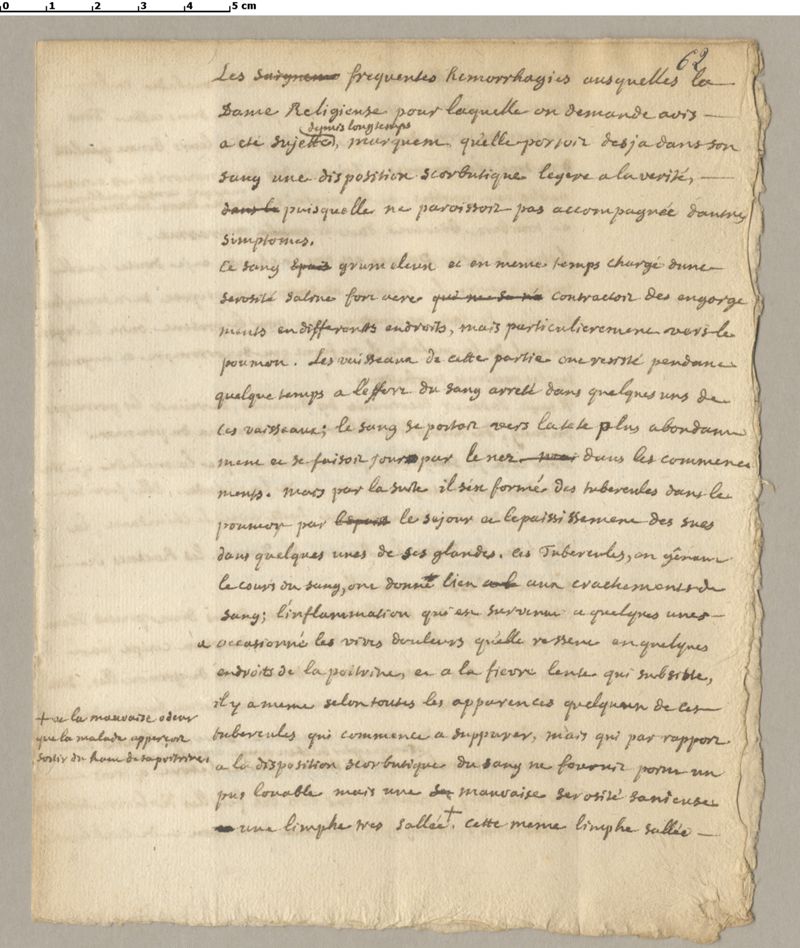 0 1 2 3 4 5 cm
62
Les saignem frequentes hemorrhagies ausquelles la
Dame Religieuse pour laquelle on demande avis
depuis longtemps
a eté sujette, marquent qu'elle portoit desja dans son
sang une disposition scorbutique legere a la verité,
dans le puisquelle ne paroissoit pas accompagnée dautres
simptomes.
Ce sang epais grumeleux et en meme temps chargé dune
serosité saline fort acre qui ne se contractoit des engorge
ments en differents endroits, mais particulierement vers le
poumon. Les vaisseaux de cette partie ont resisté pendant
quelque temps a l'effort du sang arreté dans quelques uns de
ces vaisseaux; le sang se portoit vers la tete plus abondam
ment et se faisoit jour par le nez dans les commence
ments. mais par la suite il s'est formé des tubercules dans le
poumon par l'epaiss le sejour et lepaississement des sucs
dans quelques unes de ses glandes. Ces Tubercules, en gênant
le cours du sang, ont donné lieu aux crachements de
sang; l'inflammation qui est survenue a quelques unes
a occasionné les vives douleurs qu'elle ressent en quelques
endroits de la poitrine, et a la fievre lente qui subsiste,
il y a meme selon toutes les apparences quelqu'un de ces
tubercules qui commence a suppurer, mais qui par rapport
a la disposition scorbutique du sang ne fournit point un
pus louable mais une mauvaise serosité sanieuse
une limphe tres sallée +. cette meme limphe sallée
+ et la mauvaise odeur
que la malade apperçoit
sortir du fond de sa poitrine